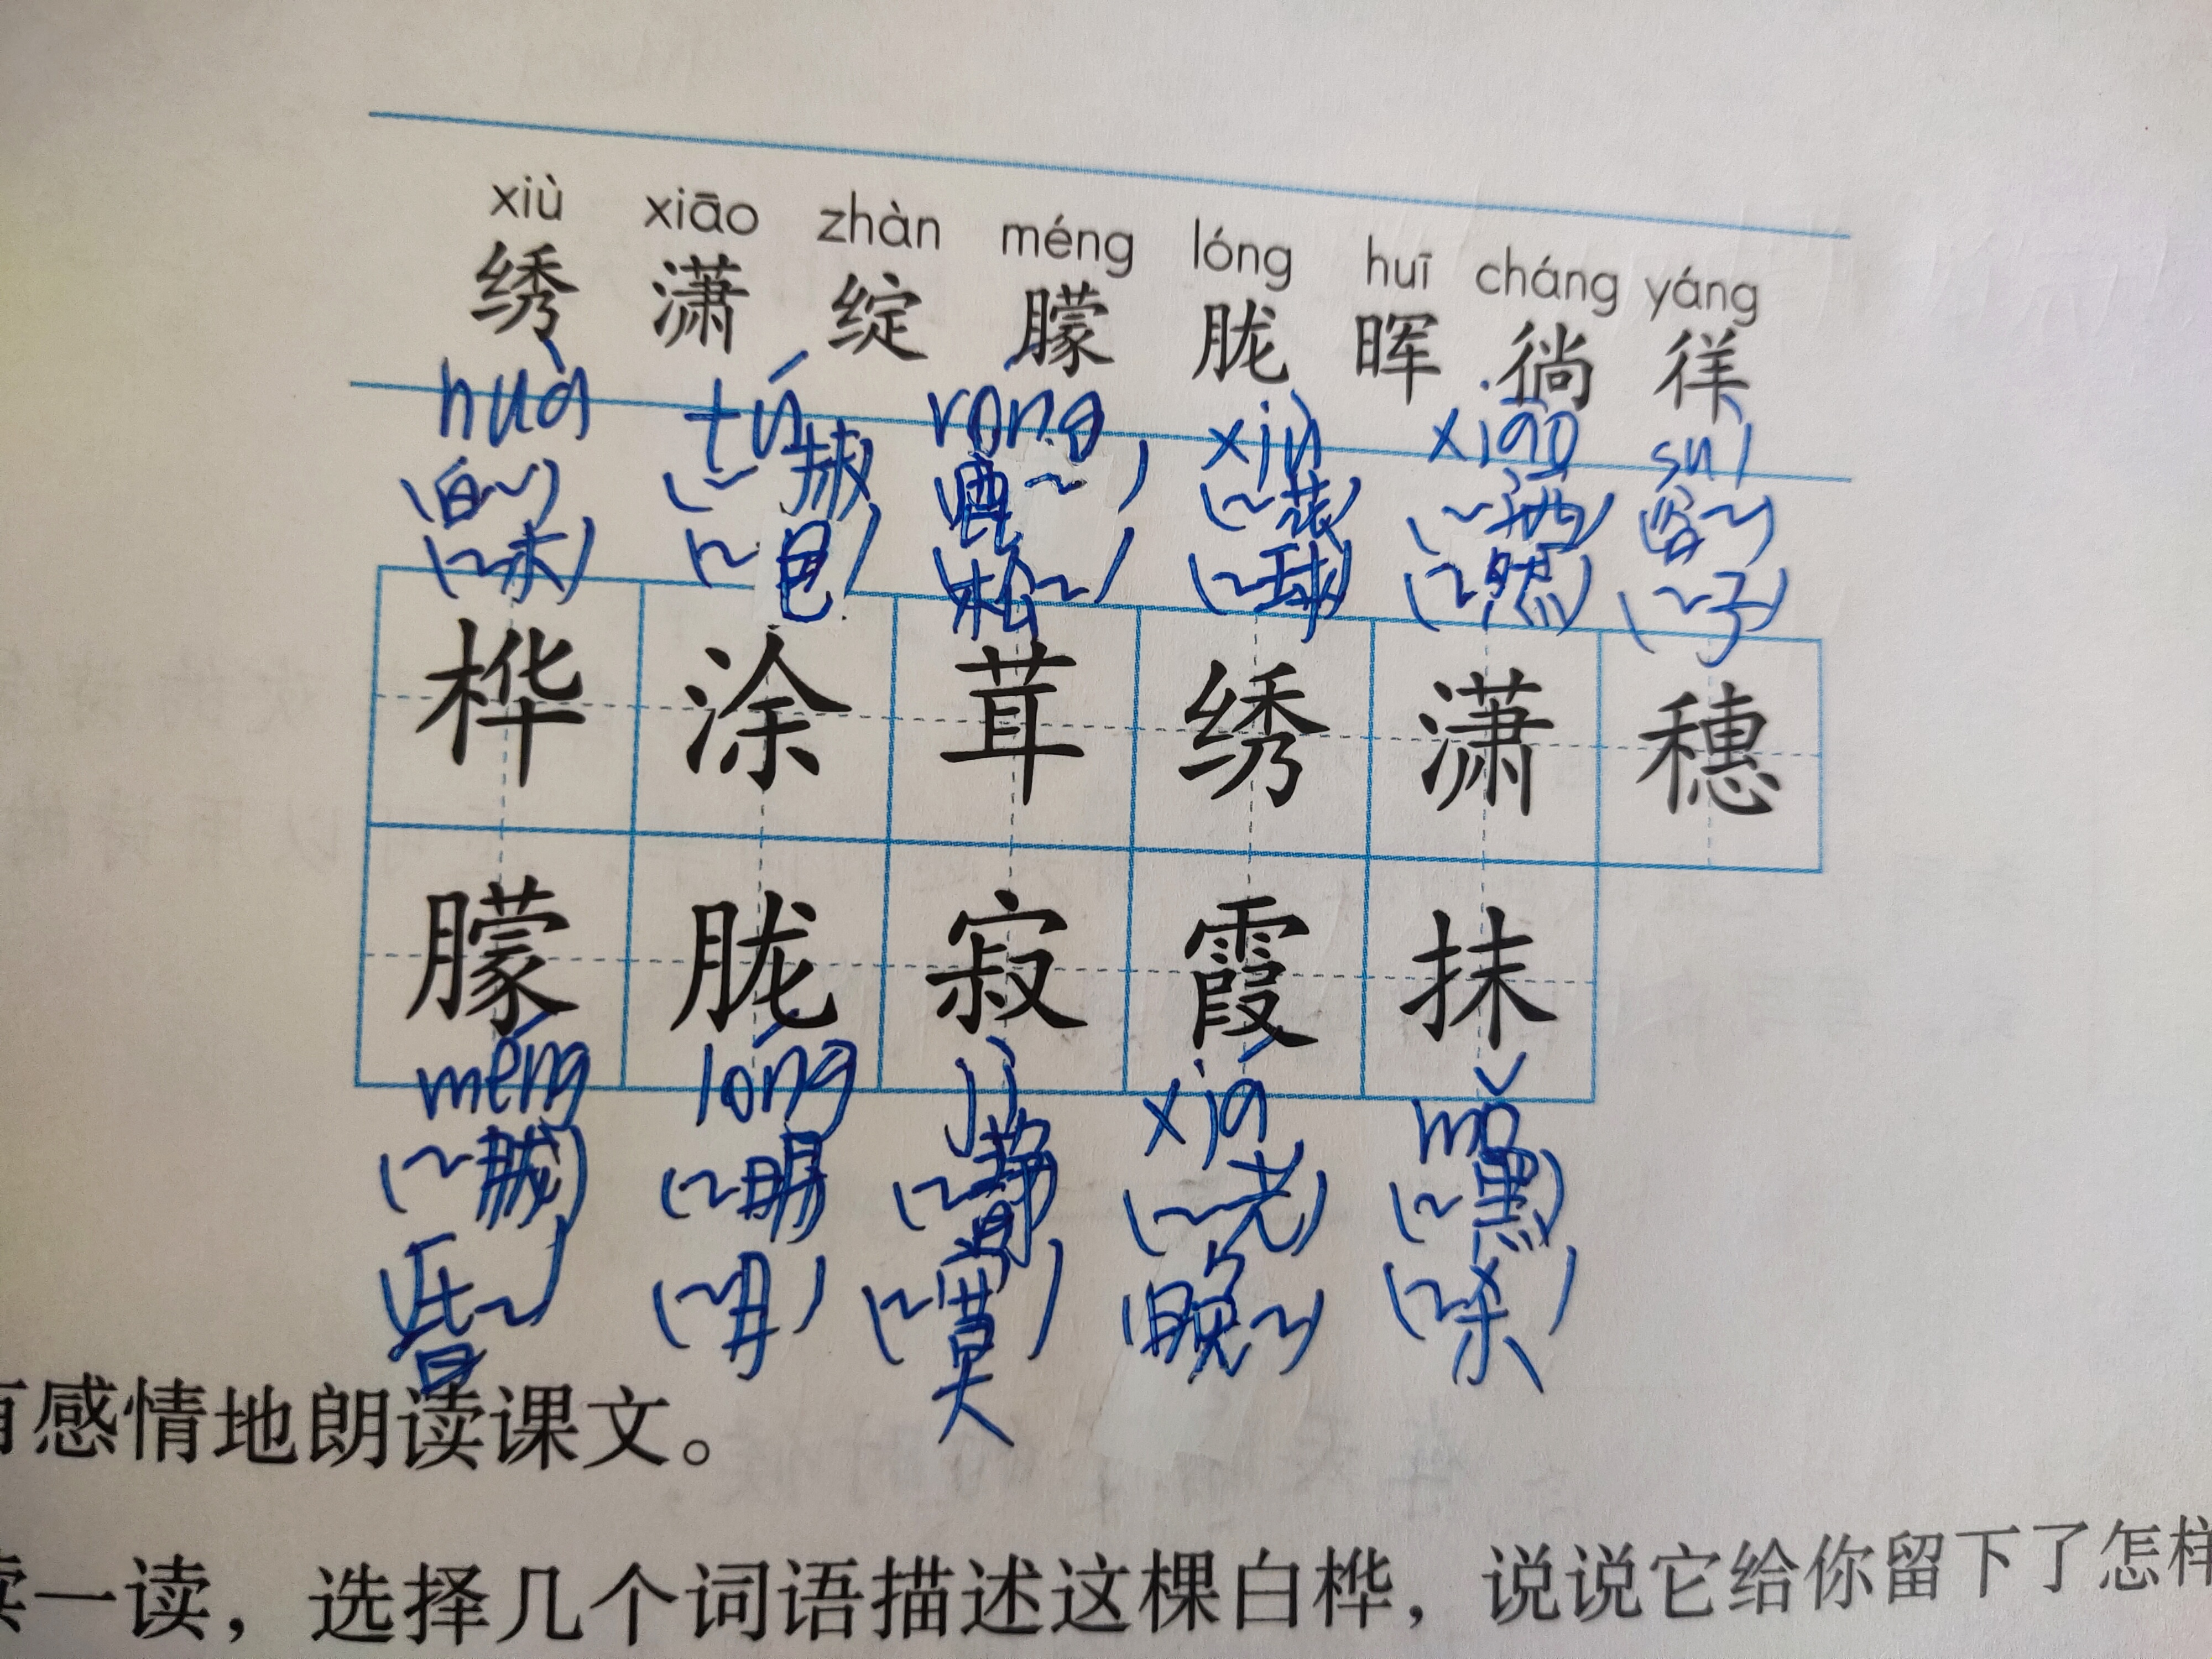 xiù xiāo zhàn méng lóng huī cháng yáng
绣 潇 绽 朦 胧 晖 徜 徉
huà tú róng xiù xiāo suì
(白~) (~抹) (鹿~) (~花) (~洒) (谷~)
(~木) (~色) (松~) (~球) (~然) (~子)
桦 涂 茸 绣 潇 穗
朦 胧 寂 霞 抹
méng lóng jì xiá mǒ
(~胧) (~明) (~静) (~光) (~黑)
昏~) (~月) (~寞) (晚~) (~杀)
有感情地朗读课文。
读一读,选择几个词语描述这棵白桦,说说它给你留下了怎样